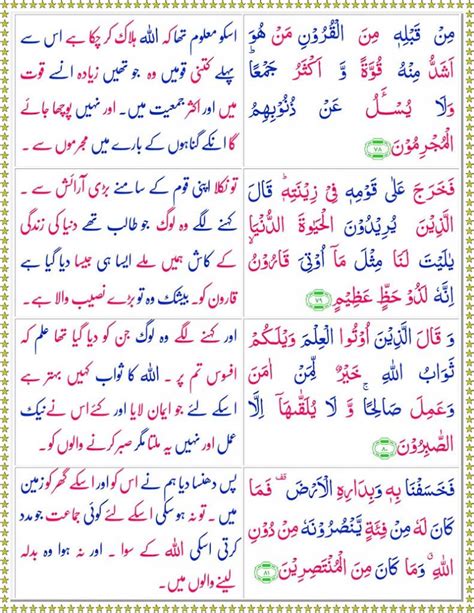 مِنْ قَبْلِهٖ مِنَ الْقُرُوْنِ مَنْ هُوَ
اَشَدُّ مِنْهُ قُوَّةً وَّ اَكْثَرُ جَمْعًاؕ
وَلَا یُسْـَٔلُ عَنْ ذُنُوْبِهِمُ
الْمُجْرِمُوْنَ ﴿۷۸﴾
اسکو معلوم تھا کہ اللہ ہلاک کر چکا ہے اس سے
پہلے کتنی قومیں وہ جو تھیں زیادہ انسے قوت
میں اور اکثر جمعیت میں۔ اور نہیں پوچھا جائے
گا انکے گناہوں کے بارے میں مجرموں سے ۔
فَخَرَجَ عَلٰی قَوْمِهٖ فِیْ زِیْنَتِهٖؕ قَالَ
الَّذِیْنَ یُرِیْدُوْنَ الْحَیٰوةَ الدُّنْیَا
یٰلَیْتَ لَنَا مِثْلَ مَاۤ اُوْتِیَ قَارُوْنُۙ
اِنَّهٗ لَذُوْ حَظٍّ عَظِیْمٍ ﴿۷۹﴾
تو نکلا اپنی قوم کے سامنے بڑی آرائش سے ۔
کہنے لگے وہ لوگ جو طالب تھے دنیا کی زندگی
کے کاش ہمیں ملے ایسا ہی جیسا دیا گیا ہے
قارون کو۔ بیشک وہ تو بڑے نصیب والا ہے ۔
وَ قَالَ الَّذِیْنَ اُوْتُوا الْعِلْمَ وَیْلَكُمْ
ثَوَابُ اللّٰهِ خَیْرٌ لِّمَنْ اٰمَنَ
وَعَمِلَ صَالِحًاۚ وَ لَا یُلَقّٰىهَاۤ اِلَّا
الصّٰبِرُوْنَ ﴿۸۰﴾
اور کہنے لگے وہ لوگ جن کو دیا گیا تھا علم کہ
افسوس تم پر ۔ اللہ کا ثواب کہیں بہتر ہے
اسکے لئے جو ایمان لایا اور کئے اس نے نیک
عمل اور نہیں یہ ملتا مگر صبر کرنے والوں کو۔
فَخَسَفْنَا بِهٖ وَبِدَارِهِ الْاَرْضَ فَمَا
كَانَ لَهٗ مِنْ فِئَةٍ یَّنْصُرُوْنَهٗ مِنْ دُوْنِ
اللّٰهِۗ وَمَا كَانَ مِنَ الْمُنْتَصِرِیْنَ ﴿۸۱﴾
پس دھنسا دیا ہم نے اس کو اور اسکے گھر کو زمین
میں ۔ تو نہ ہو سکی اسکے لئے کوئی جماعت جو مدد
کرتی اسکی اللہ کے سوا ۔ اور نہ ہوا وہ بدلہ
لینے والوں میں۔